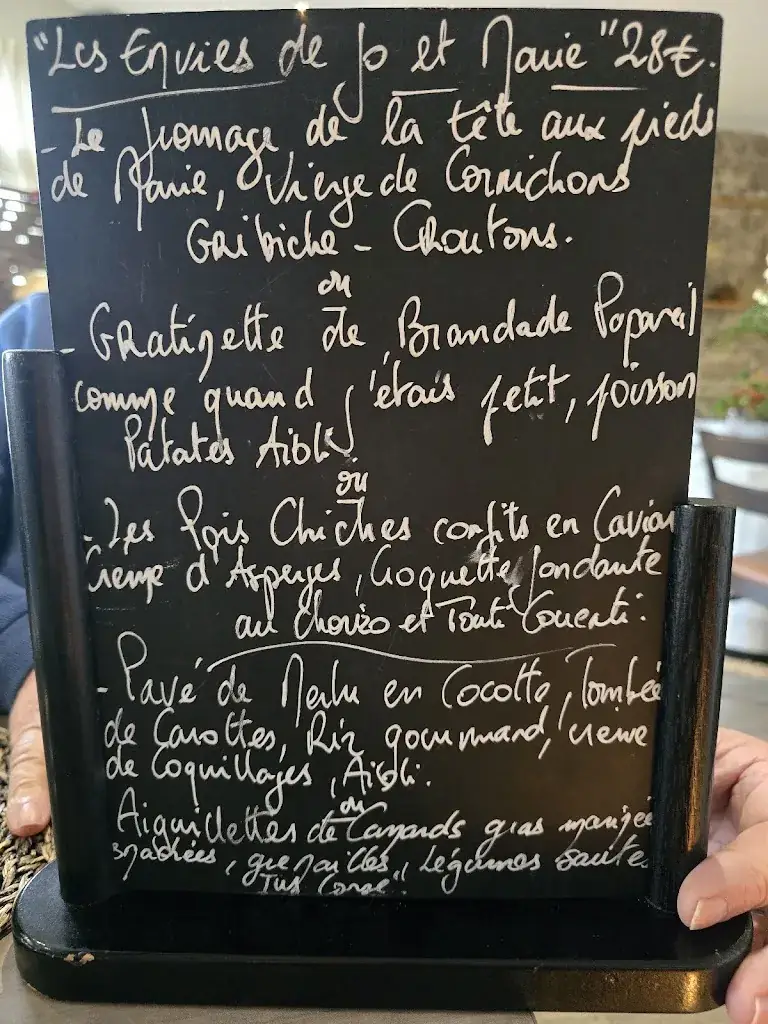 "Les Envies de Jo et Marie" 28€.
- Le fromage de la tête aux pieds
de Marie, Vierge de Cornichons
Gribiche - Croutons.
ou
- Gratinette de Brandade Popareil
comme quand j'étais petit, poisson
Patates Aioli
ou
- Les Pois Chiches confits en Caviar
Creme d'Asperges, Croquette fondante
au Chorizo et Touti
- Pavé de Merlu en Cocotte, Tombée
de Carottes, Riz gourmand, creme
de Coquillages, Aioli.
ou
Aiguillettes de Canards gras
snackées, légumes sauté
Jus Corsé.